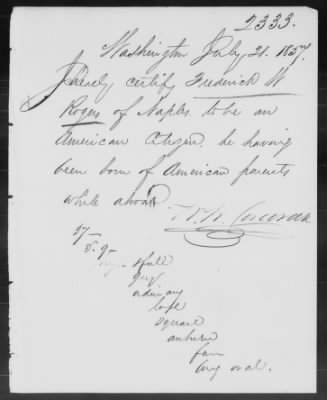 2333.
Washington July 21. 1857.
I hereby certify Frederick W
Rogers of Naples. to be an
American Citizen, he having
been born of American parents
while abroad.
W. W. Corcoran
37—
5. 9—
full
grey
ordinary
large
square
auburn
fair
long oval.